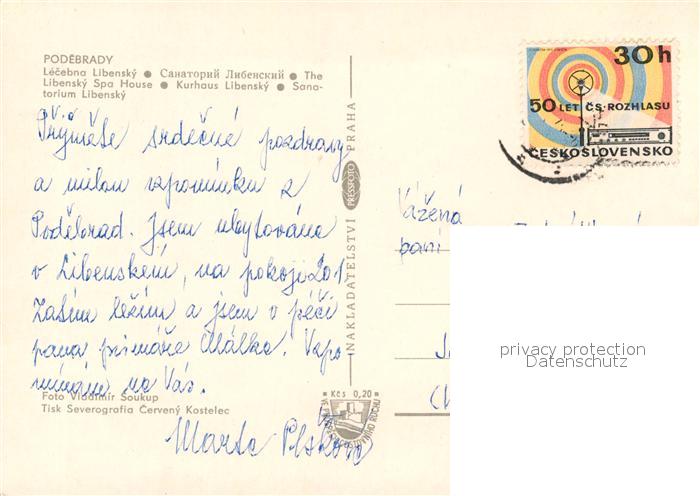 PODĚBRADY
Léčebna Libenský ● Санаторий Либенский ● The
Libenský Spa House ● Kurhaus Libenský ● Sana-
torium Libenský
Přijměte srdečné pozdravy
a milou vzpomínku z
Poděbrad. Jsem ubytována
v Libenském, na pokoji 201.
Zatím ležím a jsem v péči
pana primáře Málka. Vzpo-
mínám na Vás.
Marta
Foto Vladimír Soukup
Tisk Severografia Červený Kostelec
NAKLADATELSTVÍ PRESSFOTO PRAHA
Kčs 0,20
30 h
50 LET ČS. ROZHLASU
ČESKOSLOVENSKO
Vážená
paní
privacy protection
Datenschutz